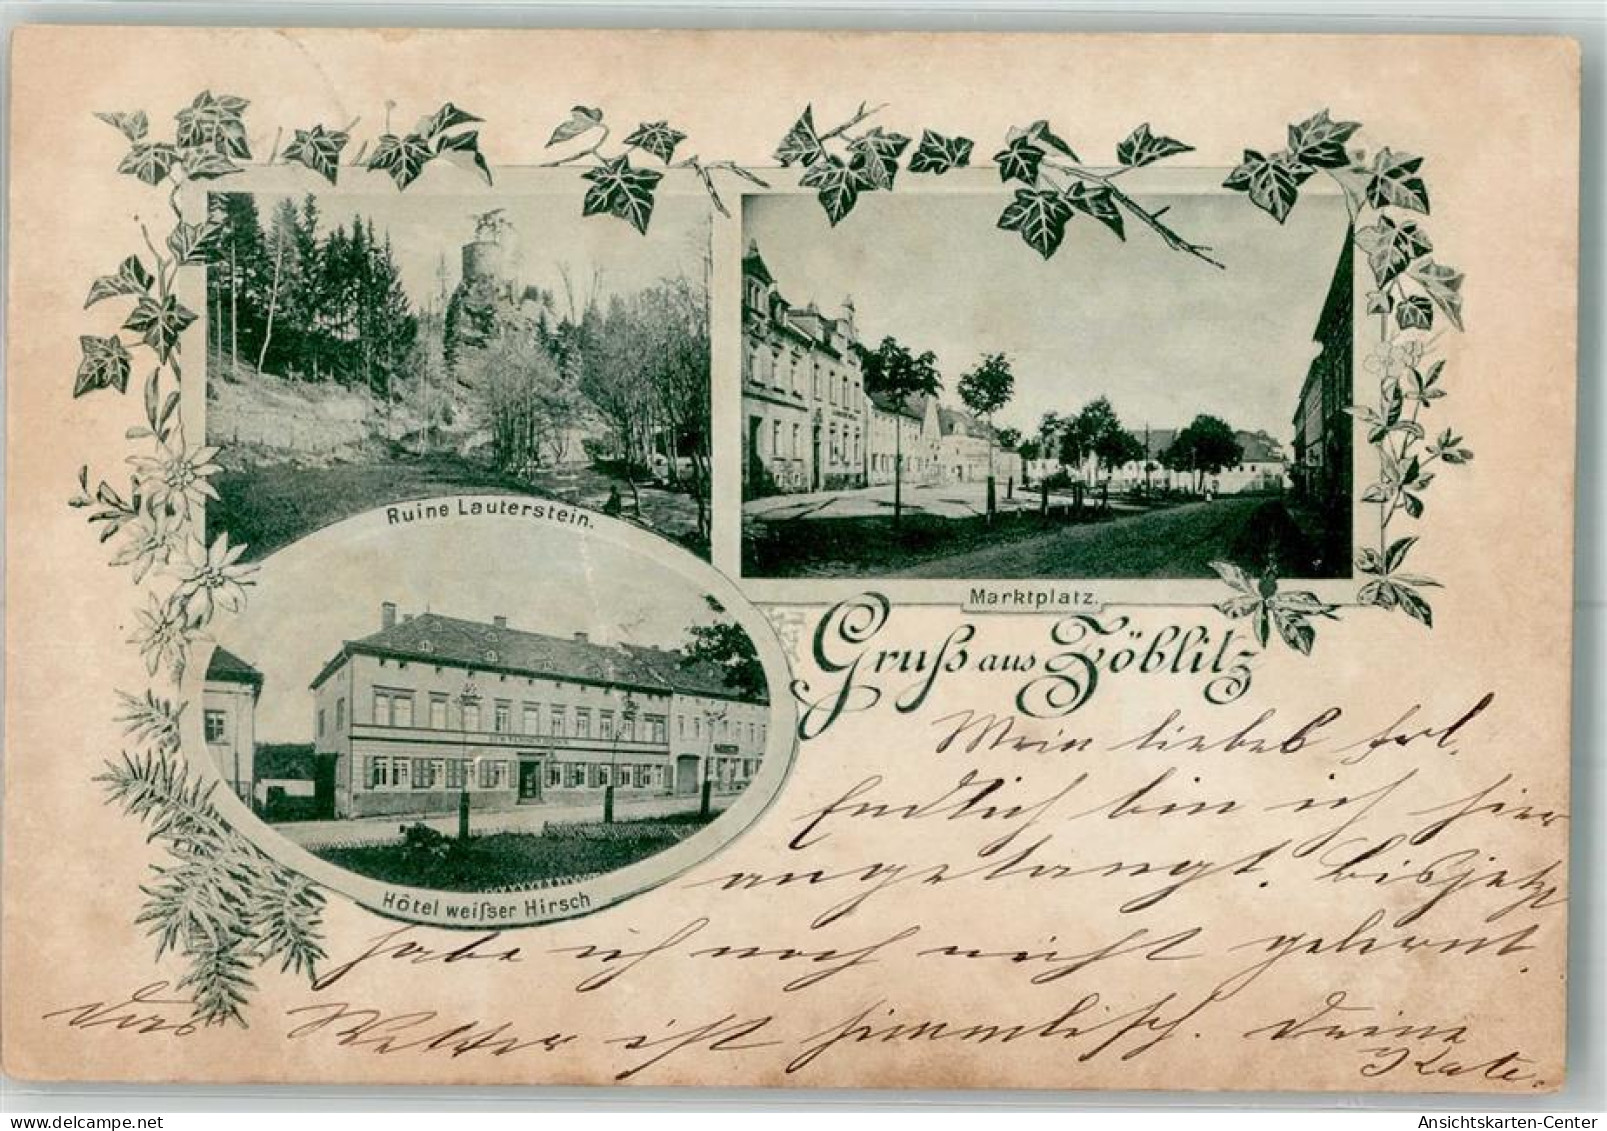 Ruine Lauterstein.
Marktplatz.
Gruß aus Zöblitz
Hôtel weiſser Hirsch
Mein liebes Frl.
Endlich bin ich hier
angelangt. Bisjetzt
habe ich noch nicht gelernt.
das Wetter ist himmlisch. Deine
Kate.
AnsichtsKarten-Center